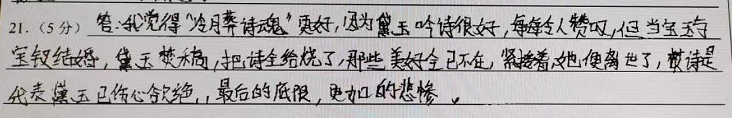 21.（5分） 答：我觉得“冷月葬诗魂”更好，因为黛玉吟诗很好，每每令人赞叹，但当宝玉与
宝钗结婚，黛玉焚稿，把诗全给烧了，那些美好全已不在，紧接着，她便离世了，焚诗是
代表黛玉已伤心欲绝，最后的底限，更加的悲惨。